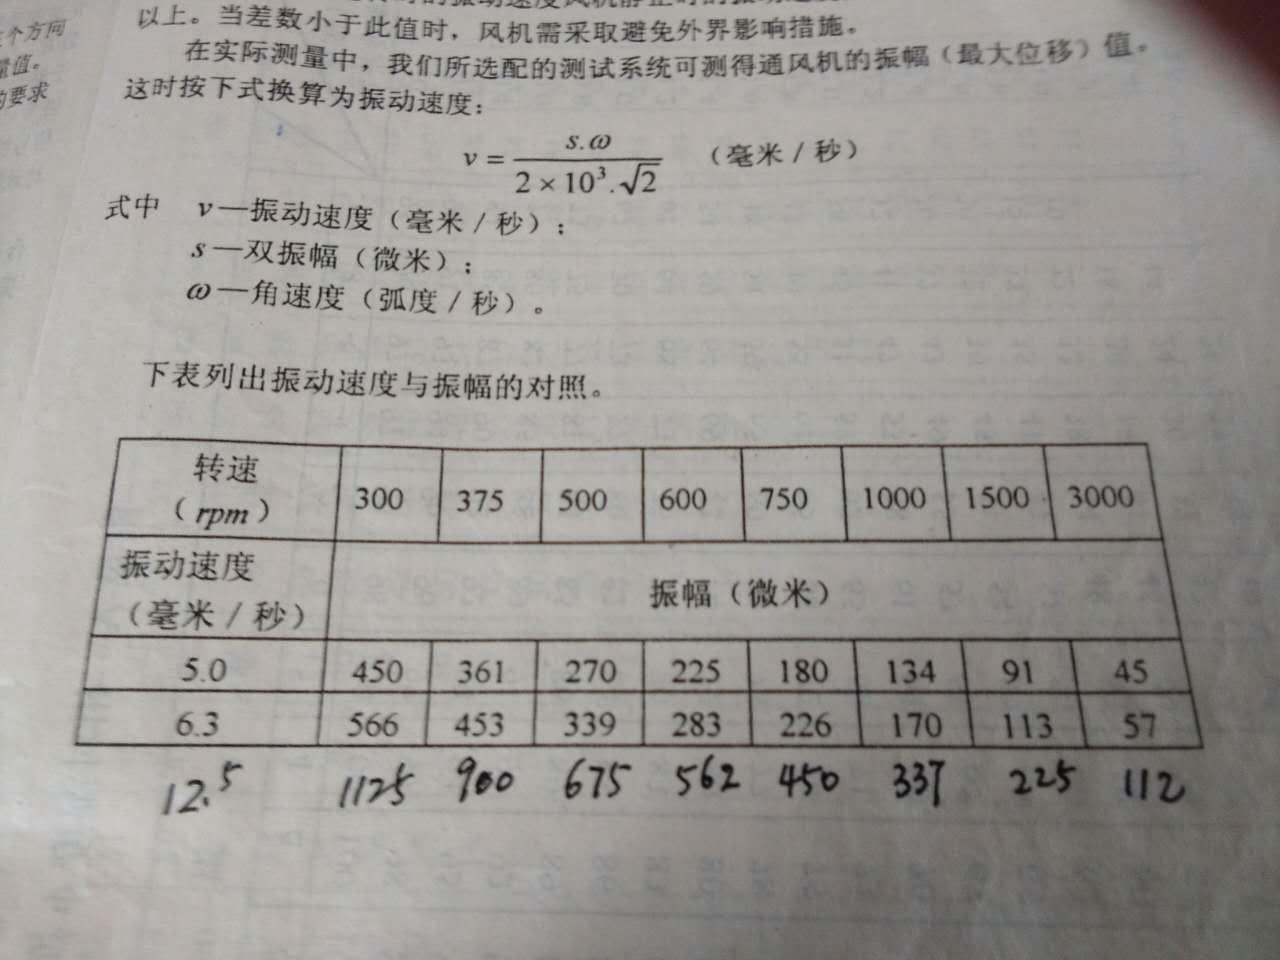 个方向
量值。
的要求
以上。当差数小于此值时，风机需采取避免外界影响措施。
在实际测量中，我们所选配的测试系统可测得通风机的振幅（最大位移）值。
这时按下式换算为振动速度：
v = s.ω / 2 × 10³.√2 （毫米/秒）
式中 v—振动速度（毫米/秒）；
s—双振幅（微米）；
ω—角速度（弧度/秒）。
下表列出振动速度与振幅的对照。
转速（rpm） 300 375 500 600 750 1000 1500 3000
振动速度（毫米/秒） 振幅（微米）
5.0 450 361 270 225 180 134 91 45
6.3 566 453 339 283 226 170 113 57
12.5 1125 900 675 562 450 337 225 112